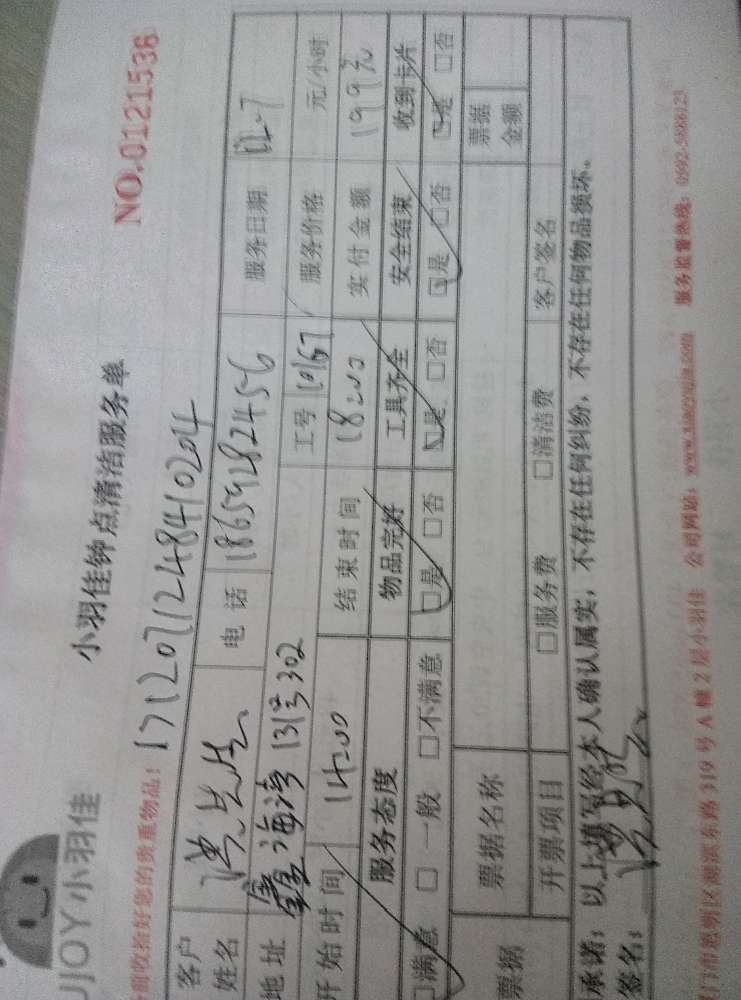 UJOY小羽佳
小羽佳钟点清洁服务单
NO.0121536
前收拾好您的贵重物品：17120711248410204
客户姓名 洪先生 电话 18659282456 服务日期 12-7
地址 鑫海湾131号302 工号 10167 服务价格 元/小时
开始时间 14:00 结束时间 18:00 实付金额 199元
服务态度 物品完好 工具齐全 安全结束 收到卡片
□满意 □一般 □不满意 □是 □否 □是 □否 □是 □否 □是 □否
票据 票据名称 票据金额
开票项目 □服务费 □清洁费 客户签名
承诺：以上填写经本人确认属实，不存在任何纠纷，不存在任何物品损坏。
签名：
门市思明区湖滨东路319号A幢2层小羽佳 公司网站： 服务监督热线：0592-5888123